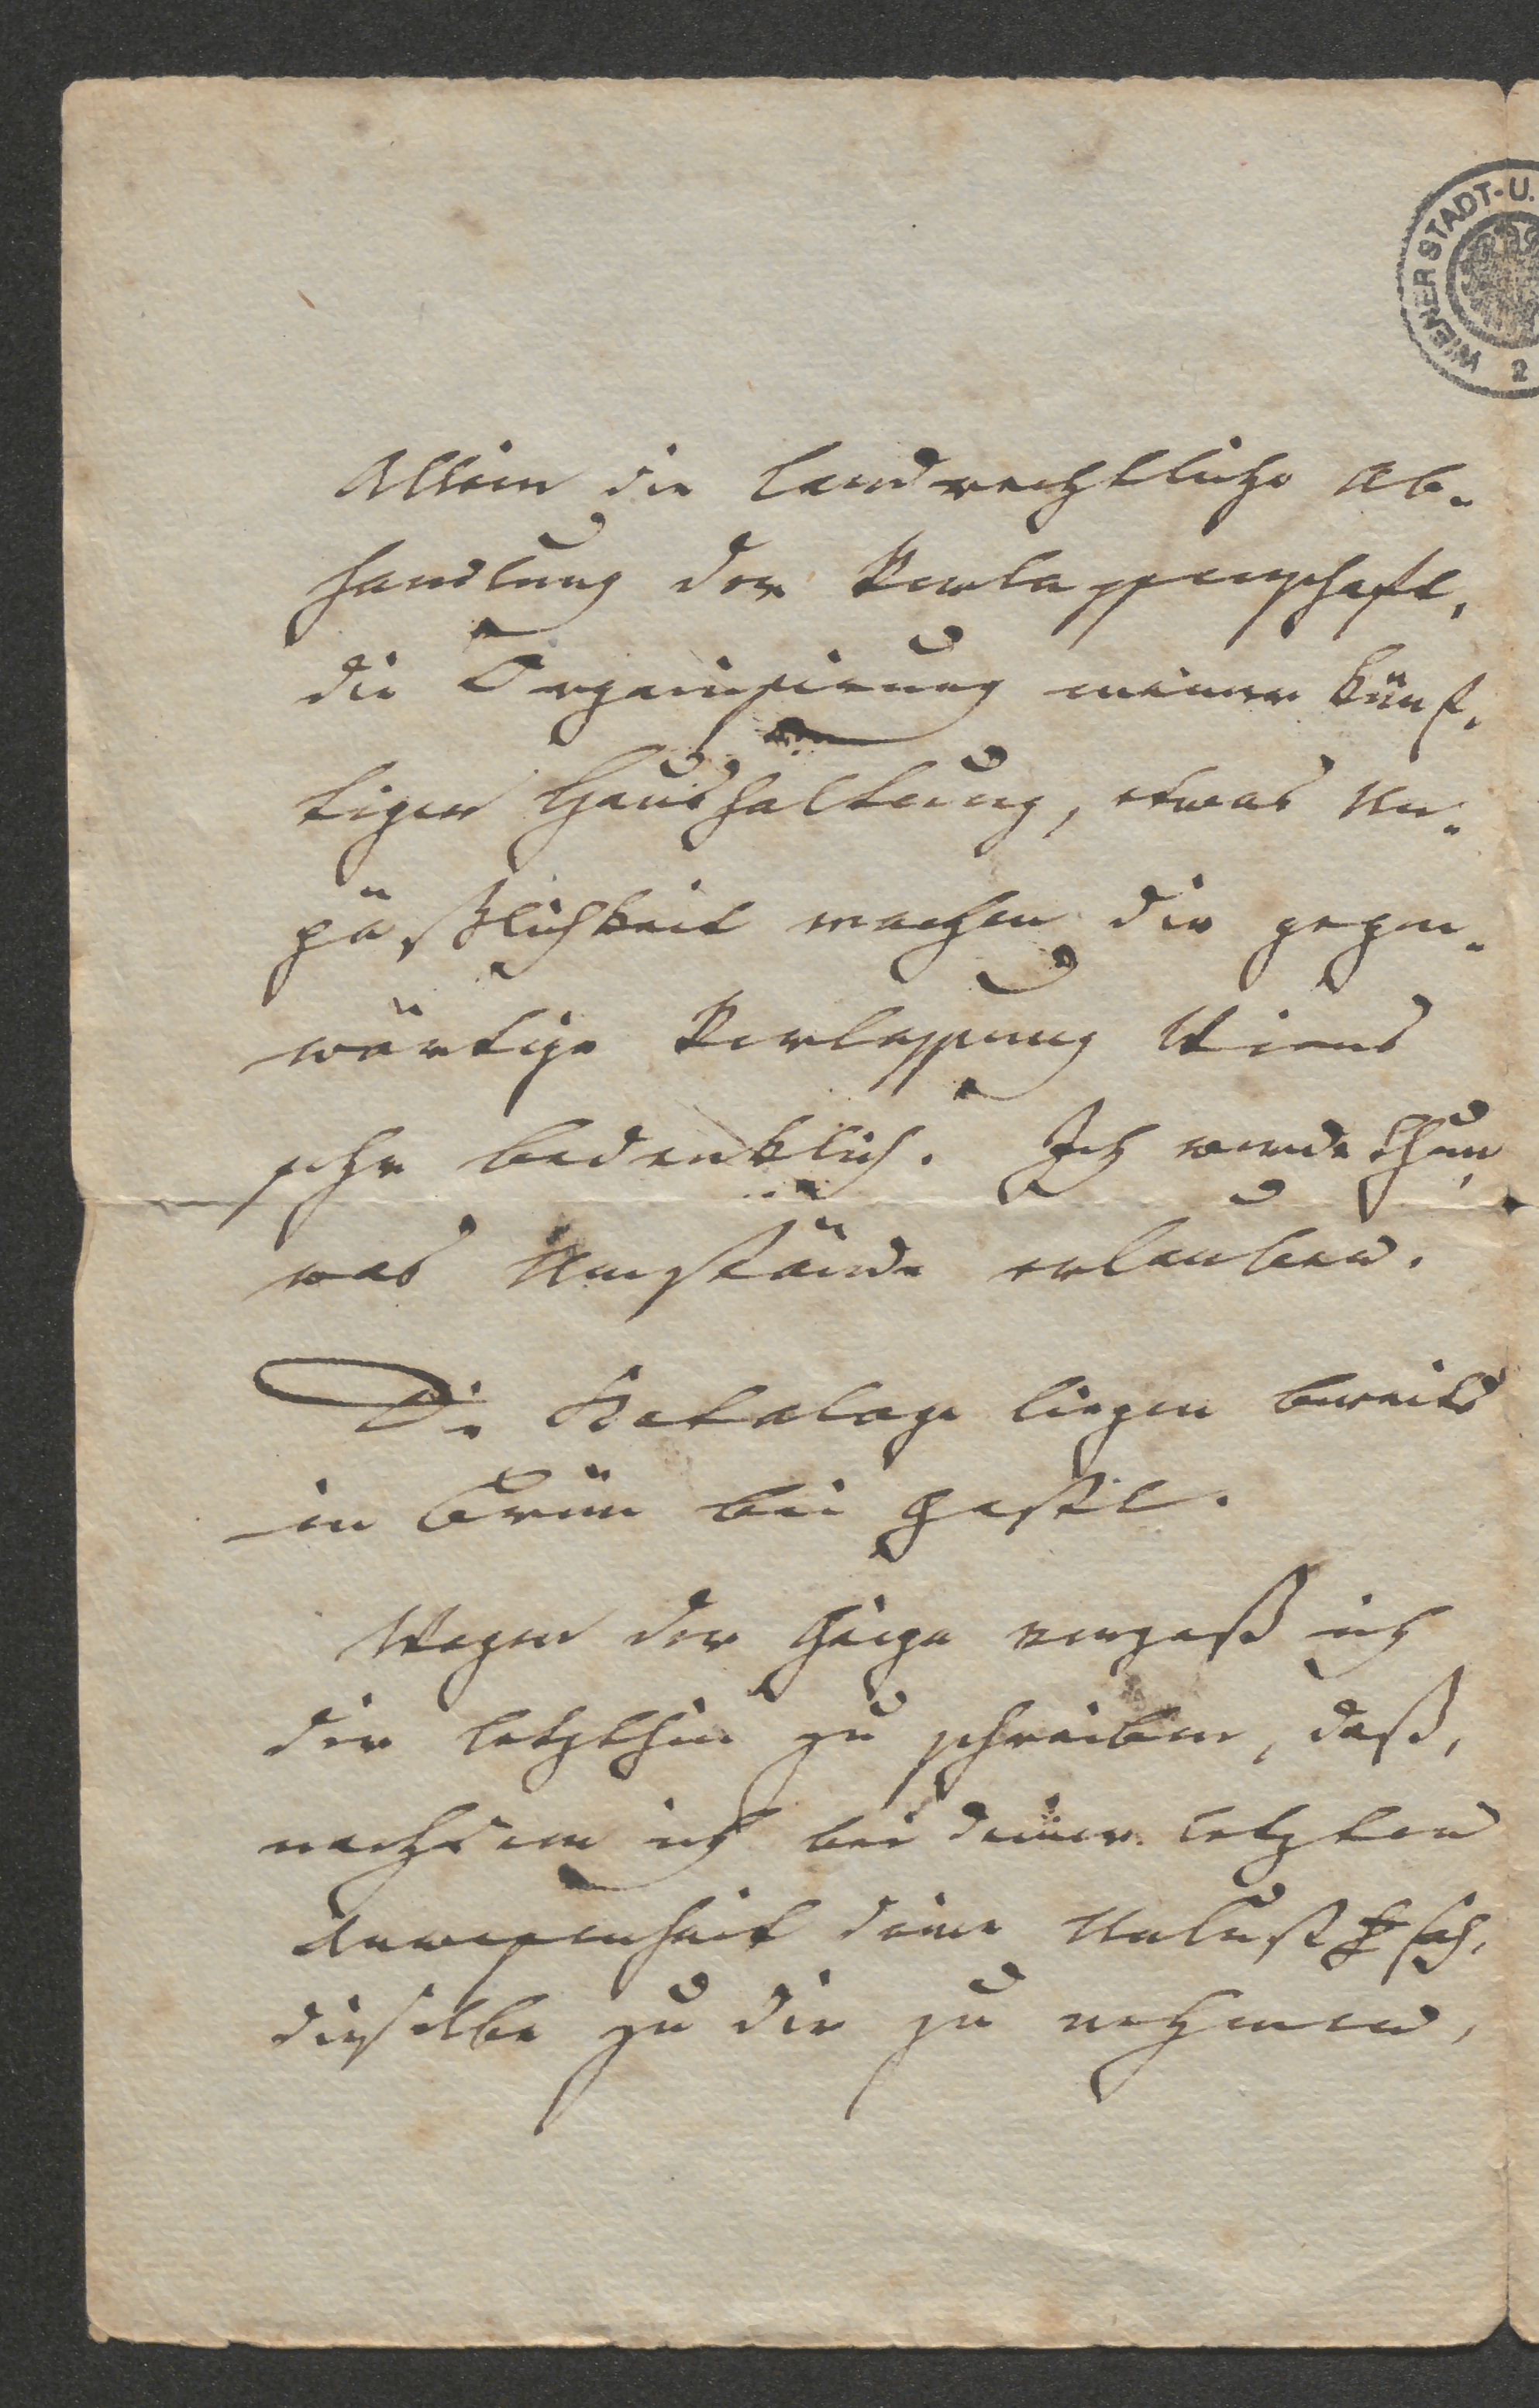 WIENER STADT-U.
2
Allein die landrechtliche Ab-
handlung der Verlassenschaft,
die Organisirung meiner künf-
tigen Haushaltung, etwas Un-
päßlichkeit machen die gegen-
wärtige Verlassung Wiens
sehr bedenklich. Ich werde thun,
was Umstände erlauben.
Die Kataloge liegen bereits
in Brün bei Gastl.
Wegen der Geige vergaß ich
dir letzthin zu schreiben, daß,
nachdem ich bei deiner letzten
Anwesenheit deine Unlust sah,
dieselbe zu dir zu nehmen,